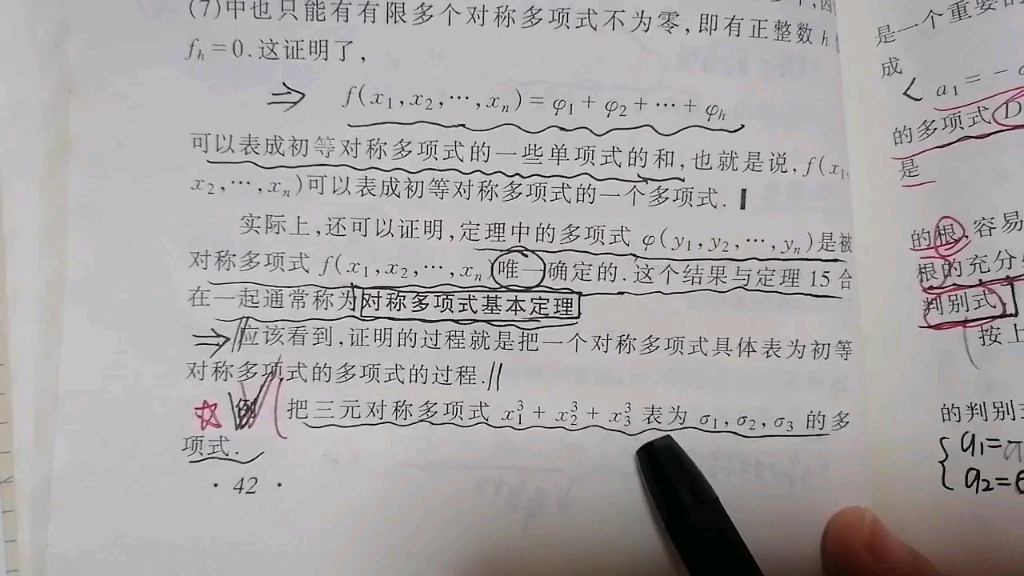 (7)中也只能有有限多个对称多项式不为零,即有正整数 h
f_h = 0. 这证明了,
⇒ f(x_1, x_2, ⋯, x_n) = φ_1 + φ_2 + ⋯ + φ_h
可以表成初等对称多项式的一些单项式的和, 也就是说, f(x_1,
x_2, ⋯, x_n)可以表成初等对称多项式的一个多项式.
实际上, 还可以证明, 定理中的多项式 φ(y_1, y_2, ⋯, y_n)是被
对称多项式 f(x_1, x_2, ⋯, x_n 唯一确定的. 这个结果与定理 15 合
在一起通常称为对称多项式基本定理
⇒ 应该看到, 证明的过程就是把一个对称多项式具体表为初等
对称多项式的多项式的过程.
☆ 例 把三元对称多项式 x_1^3 + x_2^3 + x_3^3 表为 σ_1, σ_2, σ_3 的多
项式.
· 42 ·
是一个重要的
成
a_1 = −
的多项式 D
是
的根. 容易
根的充分
判别式
按上
的判别
a_1=
a_2=